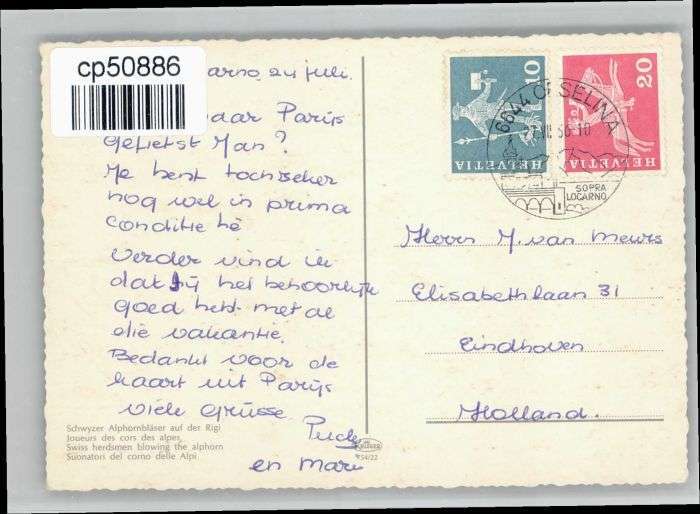 cp50886
arno 24 juli.
naar Parijs
gefietst Jan?
Je bent toch zeker
nog wel in prima
conditie hè
Verder vind ik
dat jij het behoorlijk
goed hebt met al
die vakantie.
Bedankt voor de
kaart uit Parijs
viele Grüsse.
en
Schwyzer Alphornbläser auf der Rigi
Joueurs des cors des alpes
Swiss herdsmen blowing the alphorn
Suonatori del corno delle Alpi
10
HELVETIA
20
HELVETIA
6644 ORSELINA
SOPRA
LOCARNO
Herrn J. van Meurs
Elisabethlaan 31
Eindhoven
Holland.